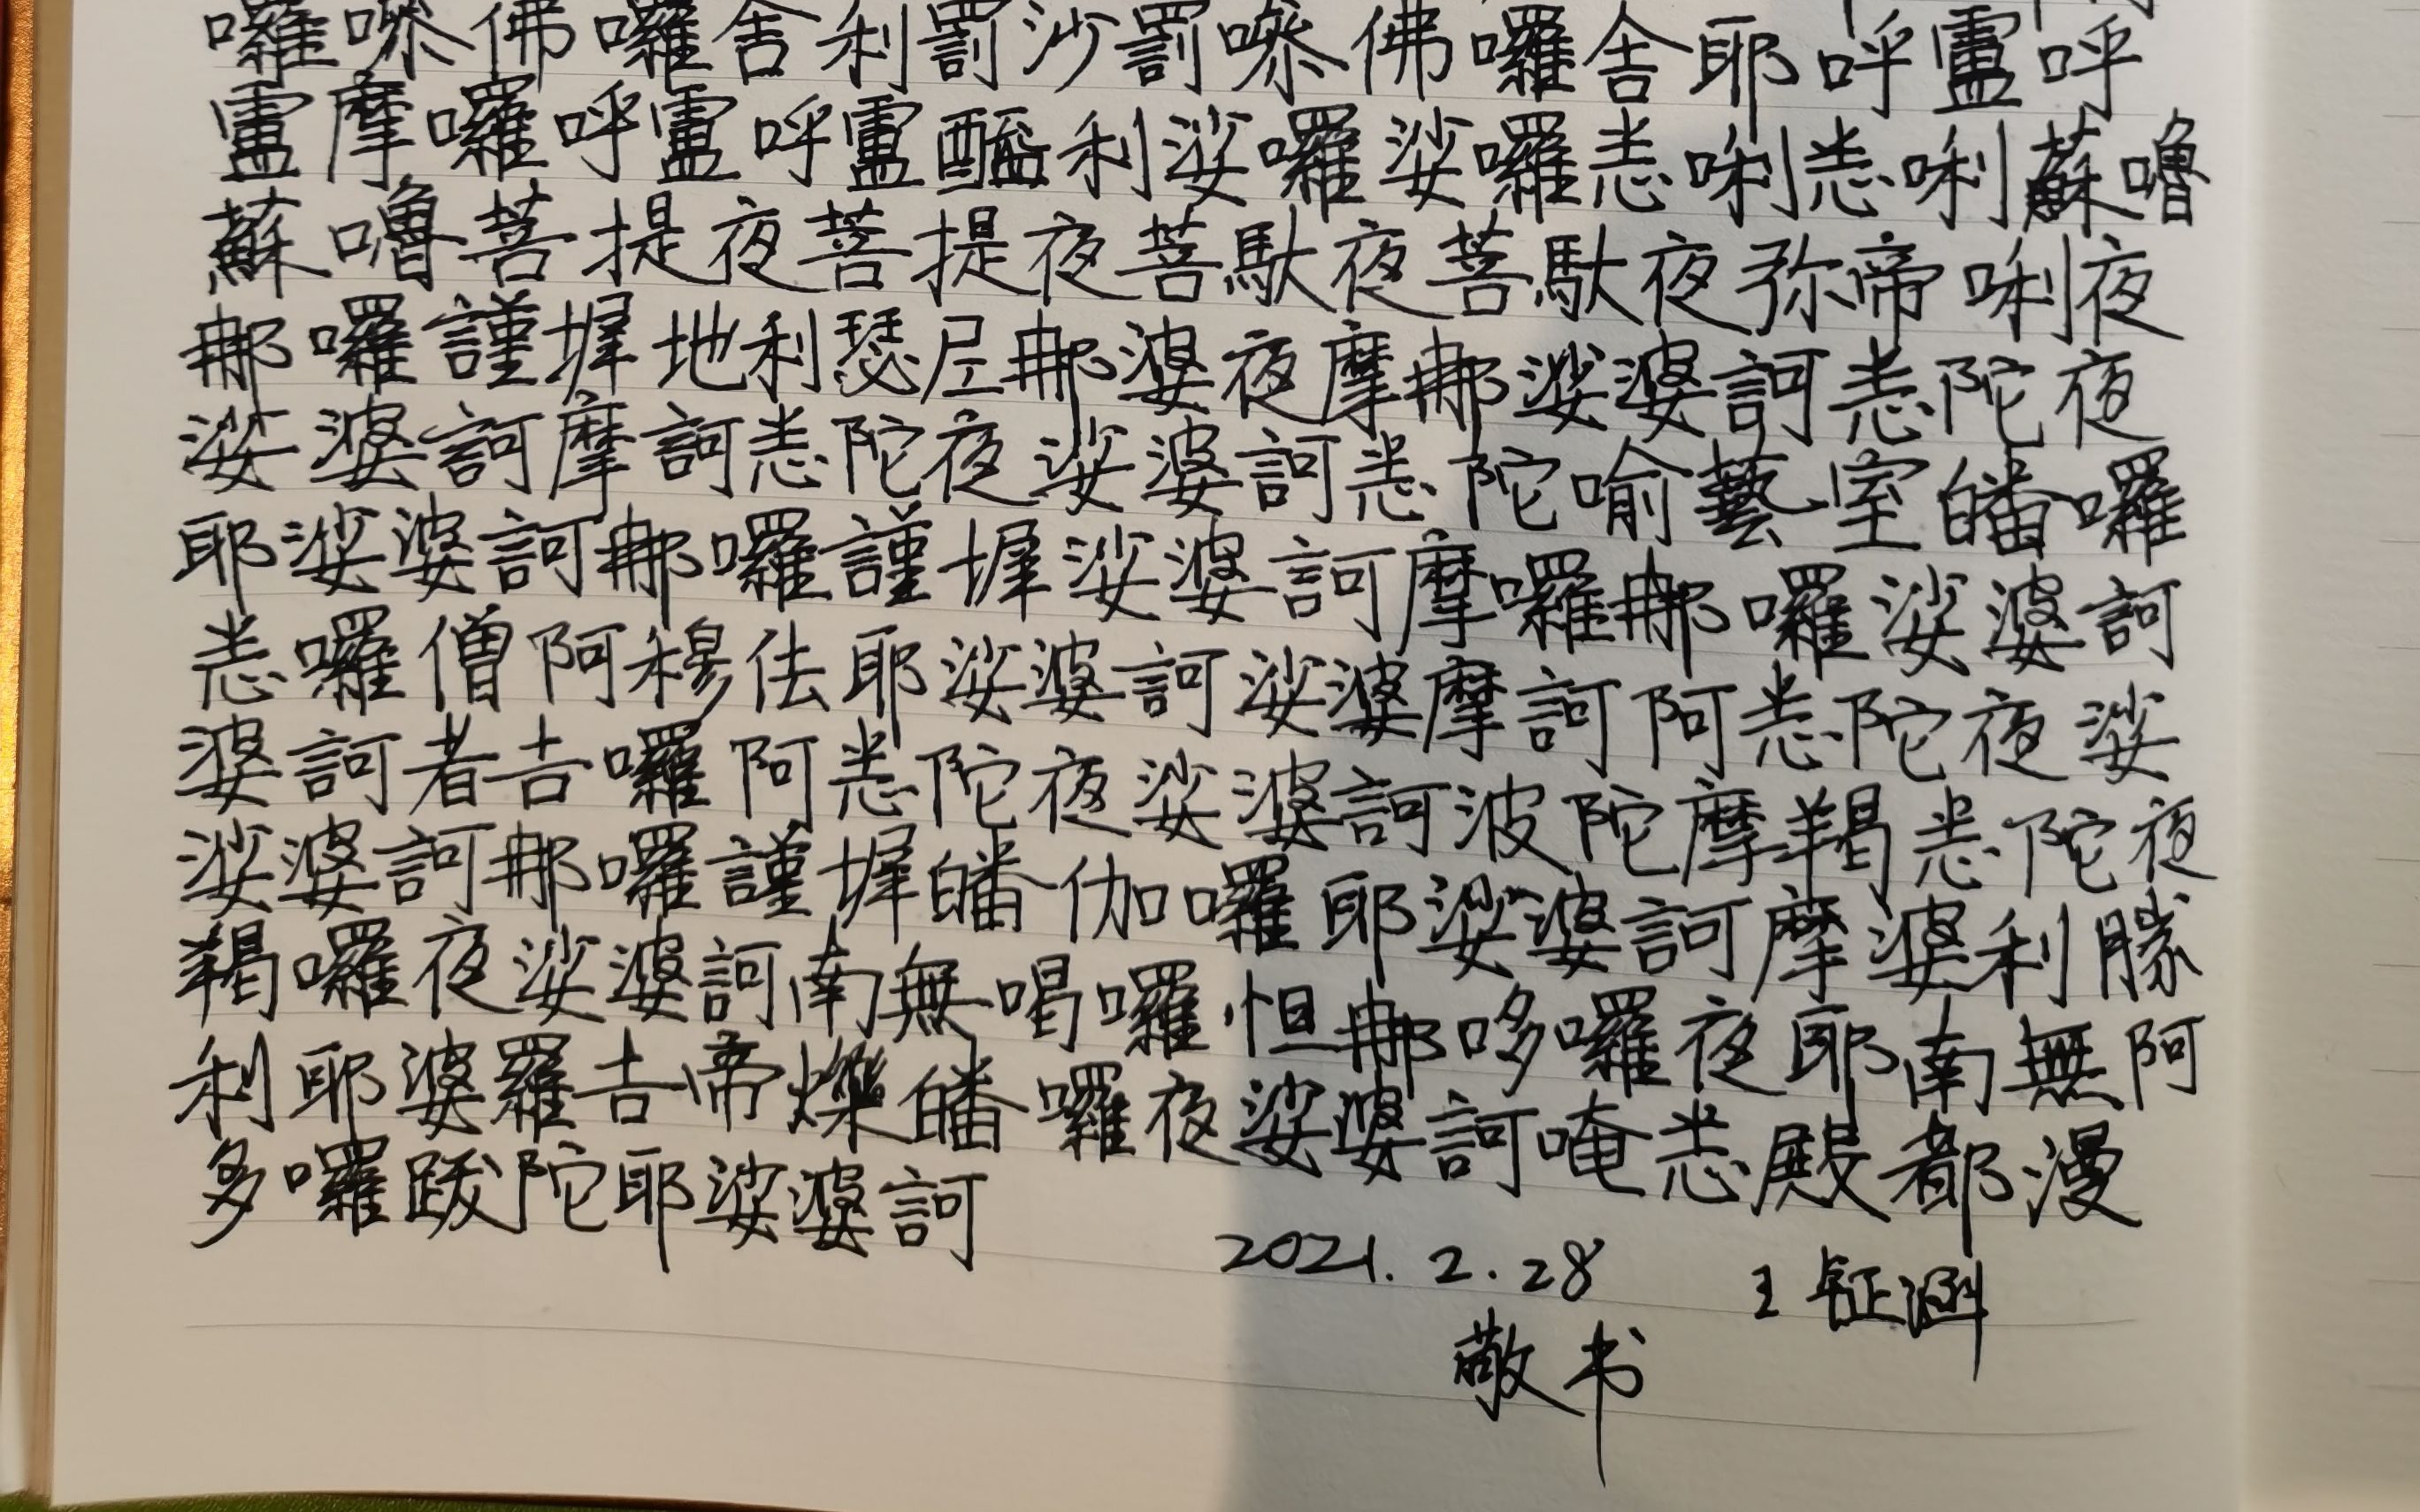 囉嘇佛囉舍利罰沙罰嘇佛囉舍耶呼盧呼
盧摩囉呼盧呼盧醯利娑囉娑囉悉唎悉唎蘇嚕
蘇嚕菩提夜菩提夜菩馱夜菩馱夜弥帝唎夜
那囉謹墀地利瑟尼那婆夜摩那娑婆訶悉陀夜
娑婆訶摩訶悉陀夜娑婆訶悉陀喻藝室皤囉
耶娑婆訶那囉謹墀娑婆訶摩囉那囉娑婆訶
悉囉僧阿穆佉耶娑婆訶娑婆摩訶阿悉陀夜娑
婆訶者吉囉阿悉陀夜娑婆訶波陀摩羯悉陀夜
娑婆訶那囉謹墀皤伽囉耶娑婆訶摩婆利勝
羯囉夜娑婆訶南無喝囉怛那哆囉夜耶南無阿
利耶婆羅吉帝爍皤囉夜娑婆訶唵悉殿都漫
多囉跋陀耶娑婆訶
2021.2.28 王钲涵
敬书